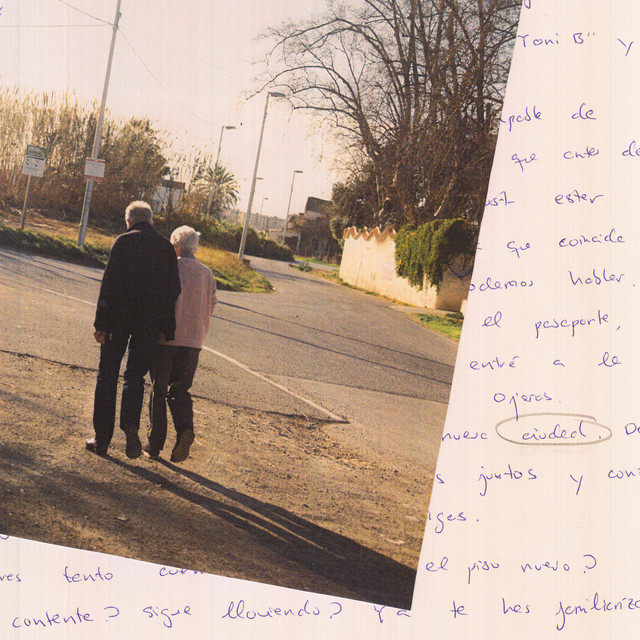 Toni B" y
de
que antes de
estar
que coincide
odemos hablar.
el pasaporte,
entré a la
Ojeras.
nueva ciudad. De
s juntos y con
ges.
res tanto el piso nuevo?
contenta? sigue lloviendo? Ya te has familiariza